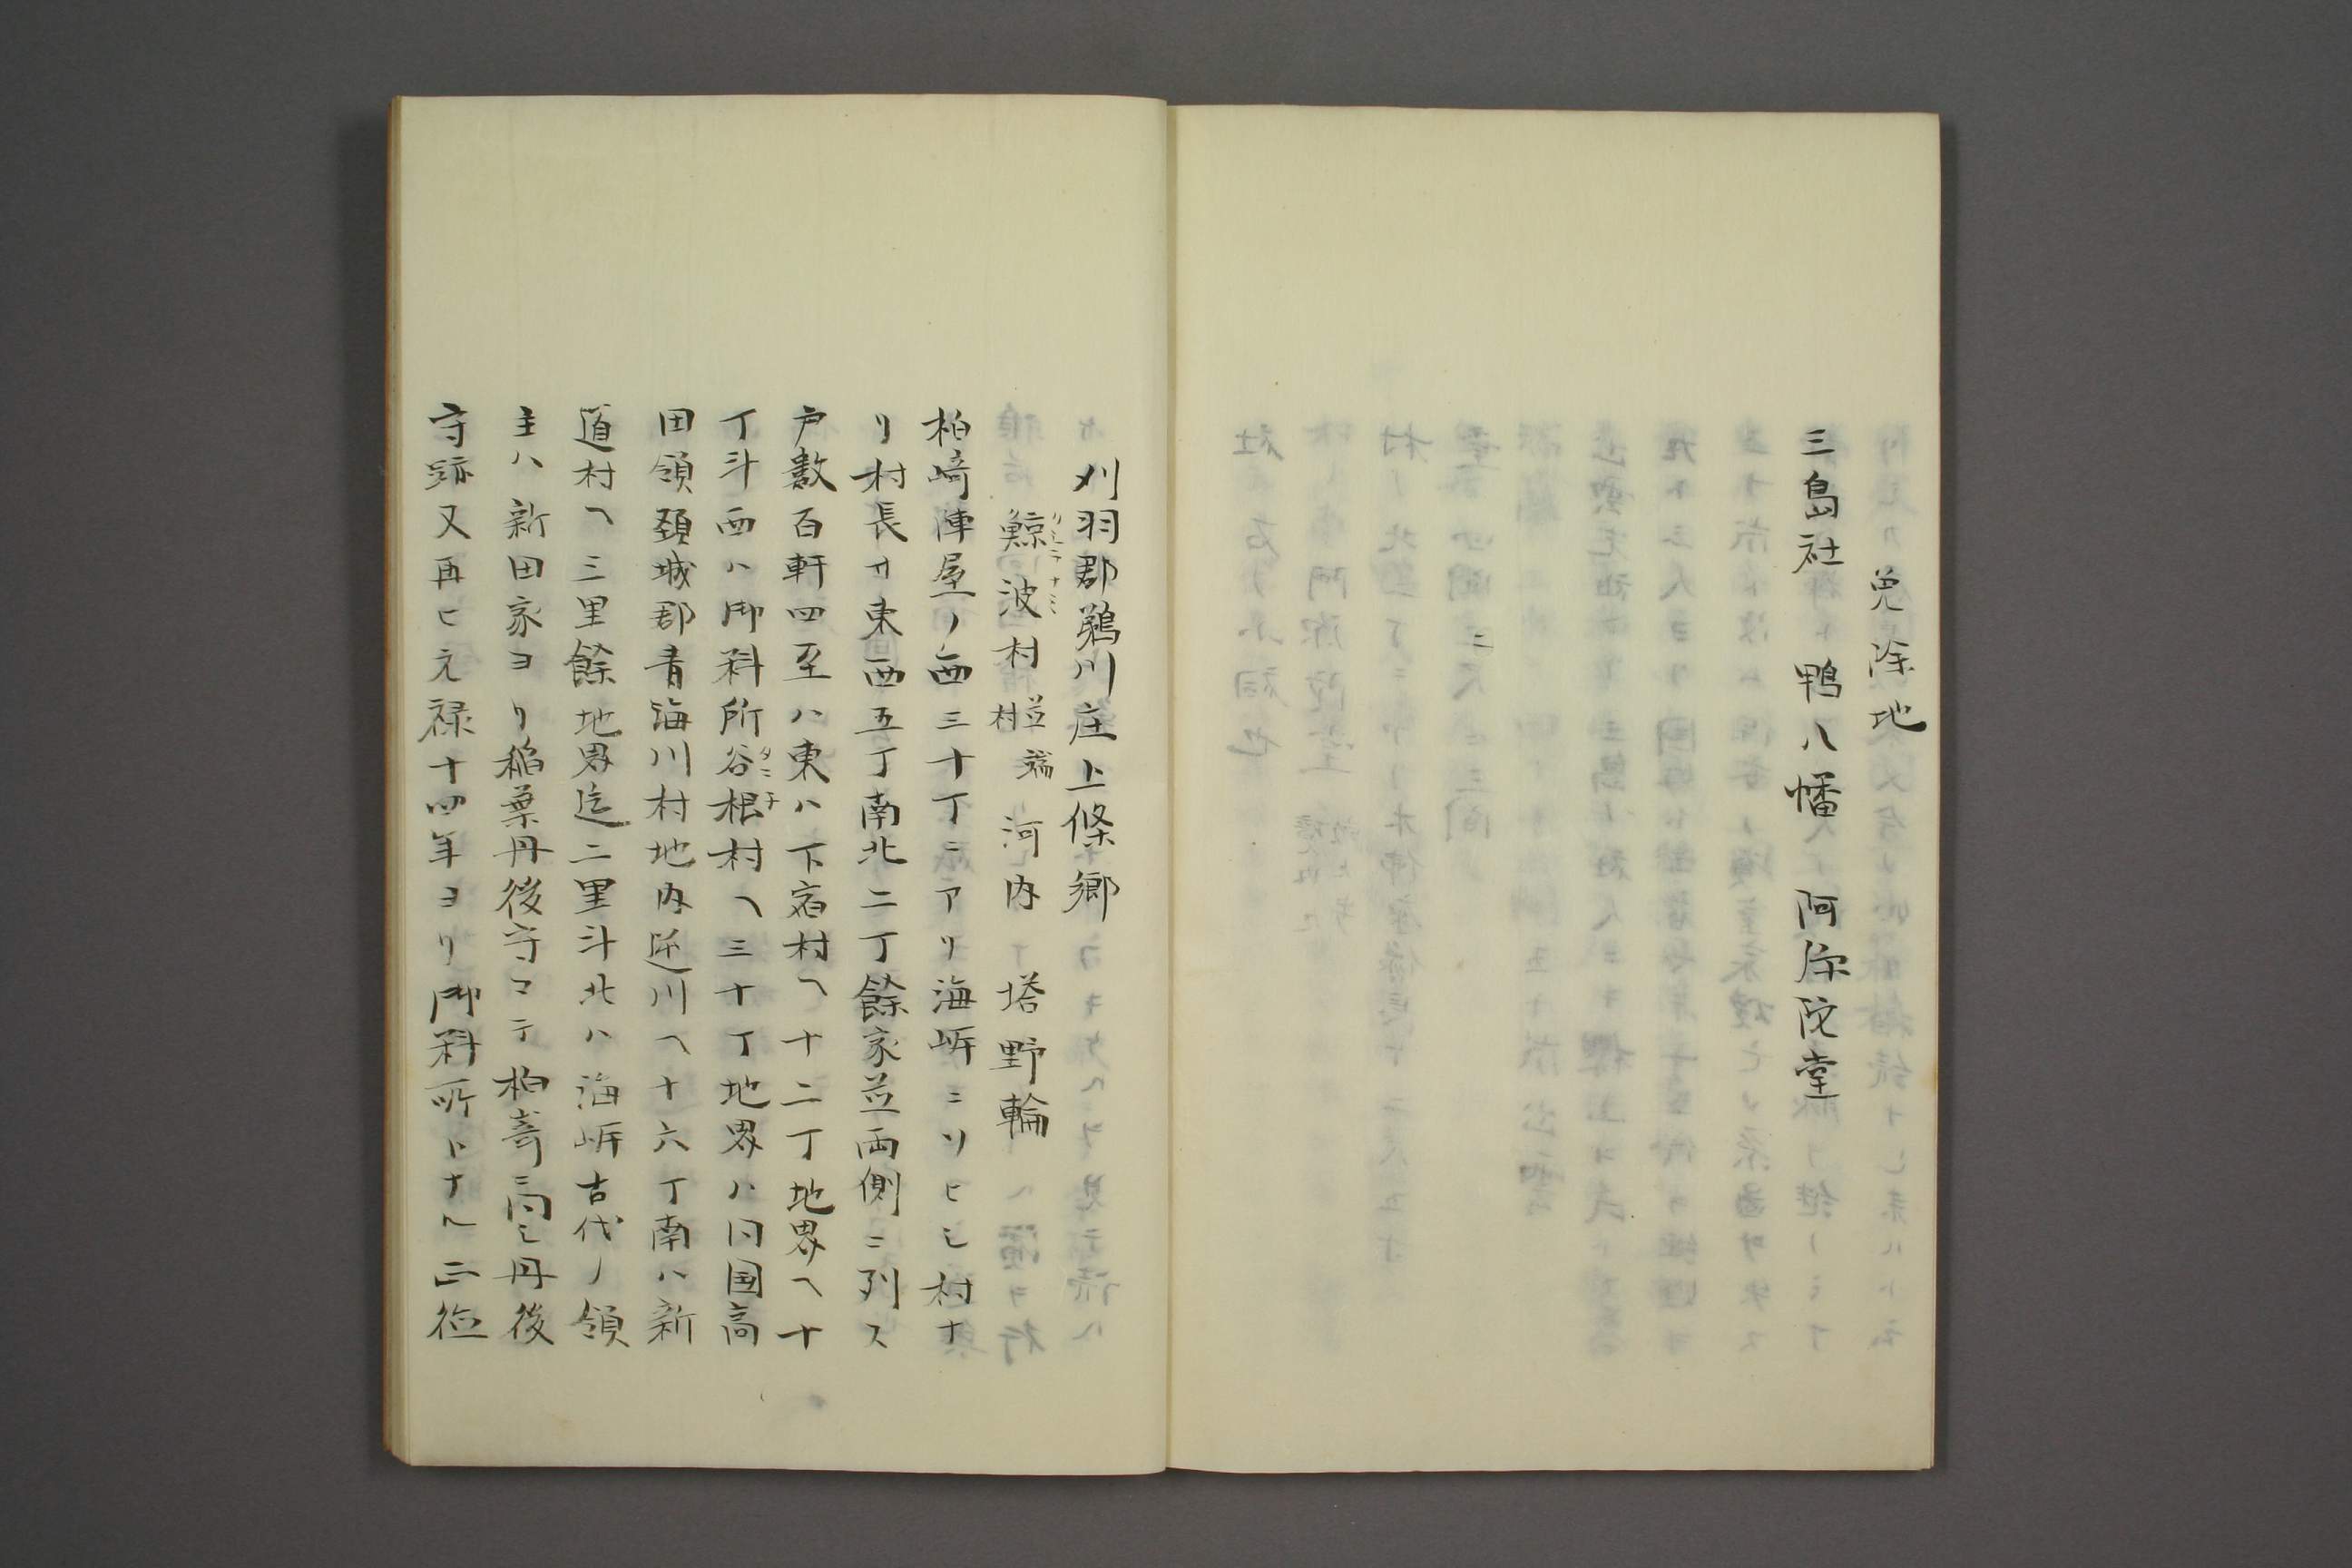 免除地
三島社　鴨八幡　阿弥陀堂
刈羽郡鵜川庄上條郷
鯨波村　並端村　河内　塔野輪
柏崎陣屋ノ西三十丁ニアリ海岍ニソヒシ村ナ
リ村長サ東西五丁南北二丁餘家並両側ニ列ス
戸數百軒四至ハ東ハ下宿村ヘ十二丁地界ヘ十
丁斗西ハ御料所谷根村ヘ三十丁地界ハ同国高
田領頚城郡青海川村地内逆川ヘ十六丁南ハ新
道村ヘ三里餘地界迄二里斗北ハ海岍古代ノ領
主ハ新田家ヨリ稲葉丹後守マテ柏崎ニ同シ丹後
守跡又再ヒ元禄十四年ヨリ御料所トナヘ正徳